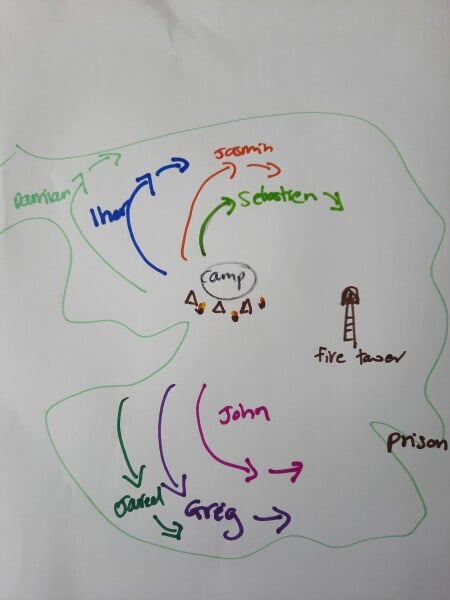 Jasmin
Damian
Ihor
Sebastien
Camp
fire tower
John
Prison
Jared
Greg